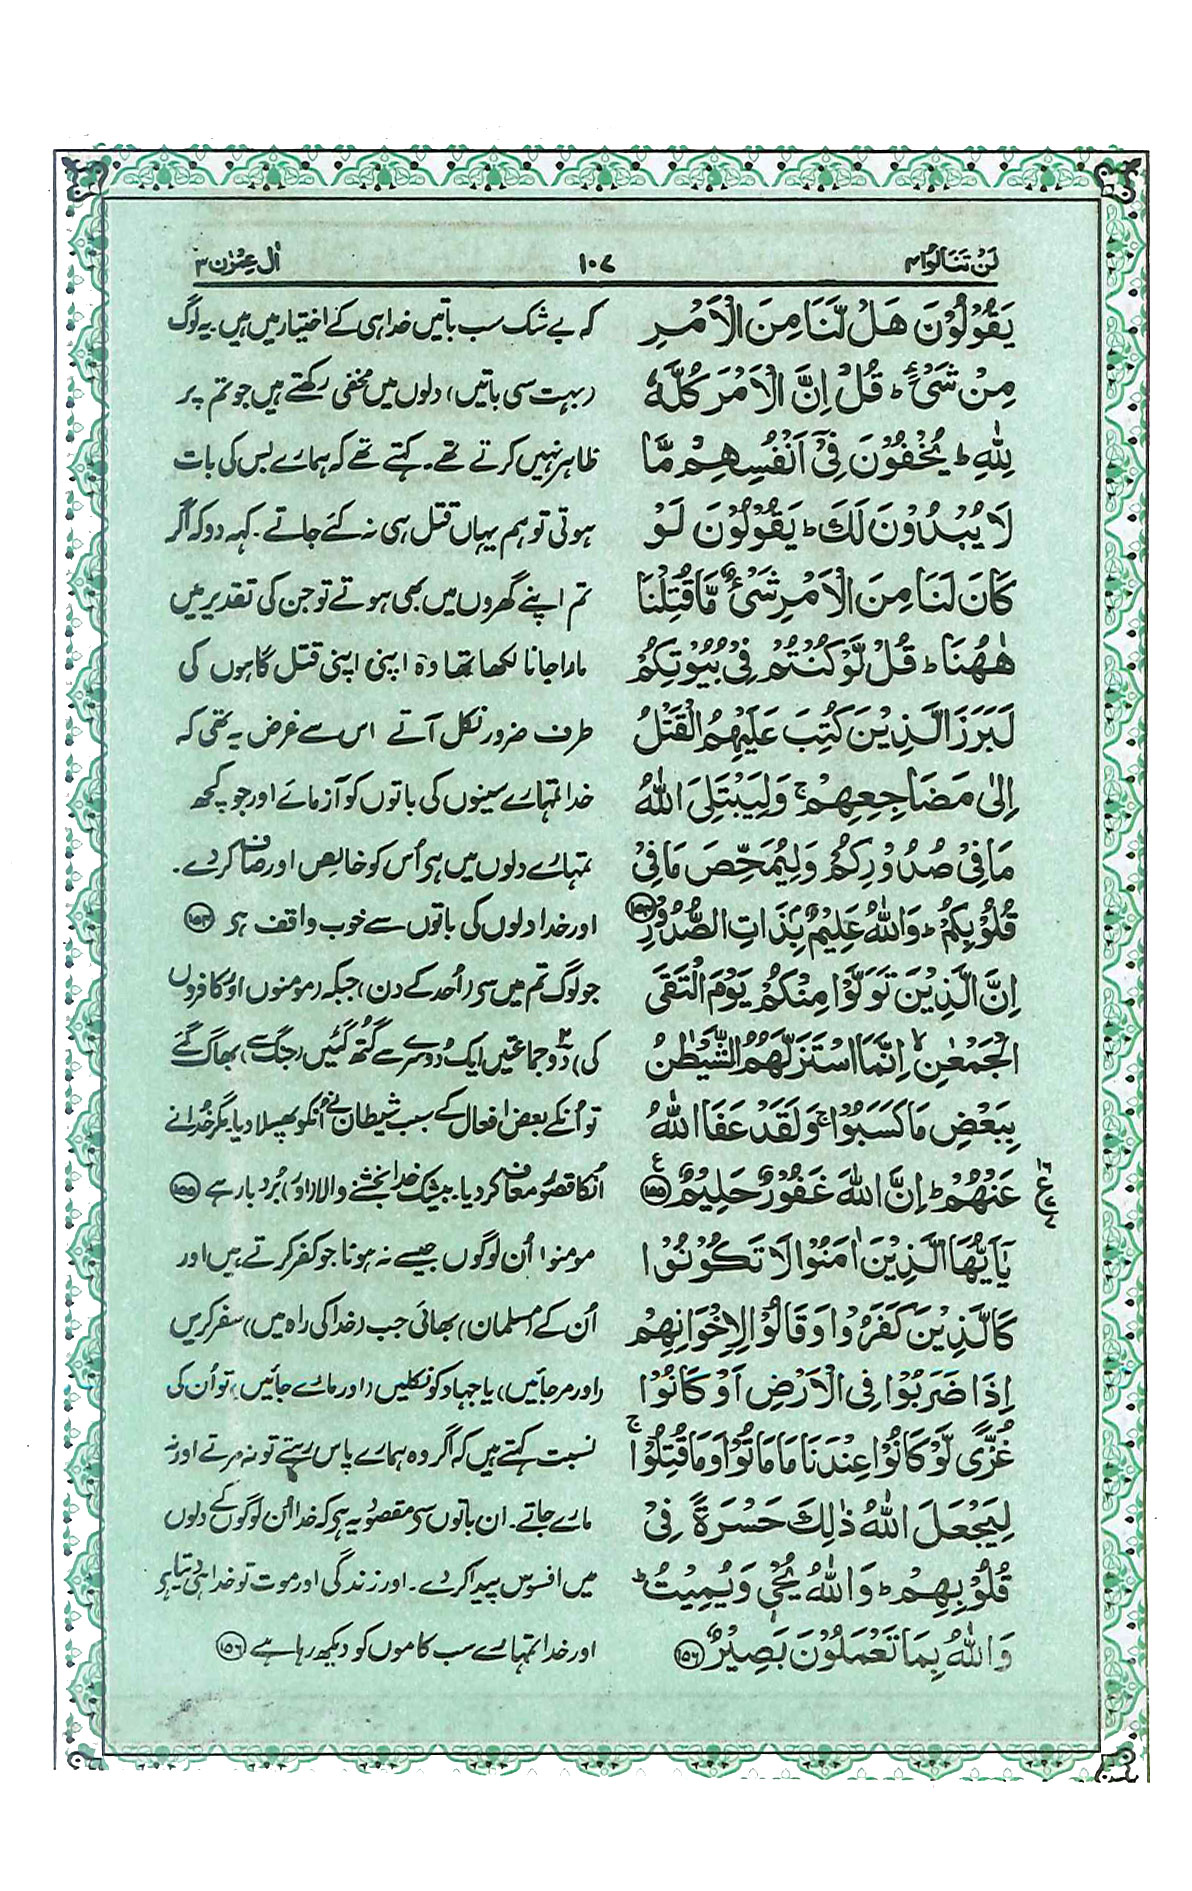 لَنْ تَنَالُوا ۴
۱۰۷
اٰل عِمْرٰن ۳
يَقُوْلُوْنَ هَلْ لَّنَا مِنَ الْاَمْرِ
مِنْ شَیْءٍ ؕ قُلْ اِنَّ الْاَمْرَ كُلَّهٗ
لِلّٰهِ ؕ يُخْفُوْنَ فِیْۤ اَنْفُسِهِمْ مَّا
لَا يُبْدُوْنَ لَكَ ؕ يَقُوْلُوْنَ لَوْ
كَانَ لَنَا مِنَ الْاَمْرِ شَیْءٌ مَّا قُتِلْنَا
هٰهُنَا ؕ قُلْ لَّوْ كُنْتُمْ فِیْ بُيُوْتِكُمْ
لَبَرَزَ الَّذِيْنَ كُتِبَ عَلَيْهِمُ الْقَتْلُ
اِلٰی مَضَاجِعِهِمْ ۚ وَلِيَبْتَلِیَ اللّٰهُ
مَا فِیْ صُدُوْرِكُمْ وَلِيُمَحِّصَ مَا فِیْ
قُلُوْبِكُمْ ؕ وَاللّٰهُ عَلِيْمٌۢ بِذَاتِ الصُّدُوْرِ ۱۵۴
اِنَّ الَّذِيْنَ تَوَلَّوْا مِنْكُمْ يَوْمَ الْتَقَی
الْجَمْعٰنِ ۙ اِنَّمَا اسْتَزَلَّهُمُ الشَّيْطٰنُ
بِبَعْضِ مَا كَسَبُوْا ۚ وَلَقَدْ عَفَا اللّٰهُ
عَنْهُمْ ؕ اِنَّ اللّٰهَ غَفُوْرٌ حَلِيْمٌ ۱۵۵
يٰۤاَيُّهَا الَّذِيْنَ اٰمَنُوْا لَا تَكُوْنُوْا
كَالَّذِيْنَ كَفَرُوْا وَقَالُوْا لِاِخْوَانِهِمْ
اِذَا ضَرَبُوْا فِی الْاَرْضِ اَوْ كَانُوْا
غُزًّی لَّوْ كَانُوْا عِنْدَنَا مَا مَاتُوْا وَمَا قُتِلُوْا ۚ
لِيَجْعَلَ اللّٰهُ ذٰلِكَ حَسْرَةً فِیْ
قُلُوْبِهِمْ ؕ وَاللّٰهُ يُحْیٖ وَيُمِيْتُ ؕ
وَاللّٰهُ بِمَا تَعْمَلُوْنَ بَصِيْرٌ ۱۵۶
کہ بے شک سب باتیں خدا ہی کے اختیار میں ہیں یہ لوگ
(بہت سی باتیں) دلوں میں مخفی رکھتے ہیں جو تم پر
ظاہر نہیں کرتے تھے۔ کہتے تھے کہ ہمارے بس کی بات
ہوتی تو ہم یہاں قتل ہی نہ کئے جاتے۔ کہہ دو کہ اگر
تم اپنے گھروں میں بھی ہوتے تو جن کی تقدیر میں
مارا جانا لکھا تھا وہ اپنی اپنی قتل گاہوں کی
طرف ضرور نکل آتے اس سے غرض یہ تھی کہ
خدا تمہارے سینوں کی باتوں کو آزمائے اور جو کچھ
تمہارے دلوں میں ہے اُس کو خالص اور صاف کر دے۔
اور خدا دلوں کی باتوں سے خوب واقف ہے ۱۵۴
جو لوگ تم میں سے (اُحد کے دن) جبکہ (مومنوں اور کافروں
کی) دو جماعتیں ایک دوسرے سے گتھ گئیں (جنگ سے) بھاگ گئے
تو اُنکے بعض افعال کے سبب شیطان نے اُنکو پھسلا دیا۔ مگر خدا نے
اُنکا قصور معاف کر دیا۔ بیشک خدا بخشنے والا (اور) بُردبار ہے ۱۵۵
مومنو! اُن لوگوں جیسے نہ ہونا جو کفر کرتے ہیں اور
اُن کے (مسلمان) بھائی جب (خدا کی راہ میں) سفر کریں
(اور مر جائیں) یا جہاد کو نکلیں (اور مارے جائیں) تو اُن کی
نسبت کہتے ہیں کہ اگر وہ ہمارے پاس رہتے تو نہ مرتے اور نہ
مارے جاتے۔ ان باتوں سے مقصود یہ ہے کہ خدا اُن لوگوں کے دلوں
میں افسوس پیدا کر دے۔ اور زندگی اور موت تو خدا ہی دیتا ہے
اور خدا تمہارے سب کاموں کو دیکھ رہا ہے ۱۵۶